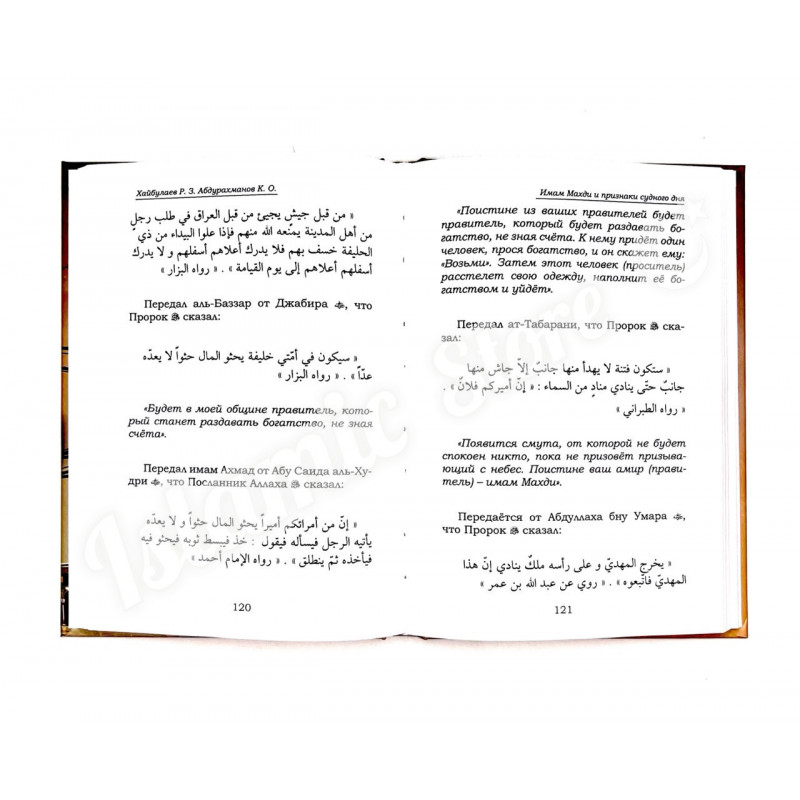 Хайбулаев Р. З. Абдурахманов К. О.
« من قبل جيش يجيئ من قبل العراق في طلب رجلٍ
من أهل المدينة يمنّعه الله منهم فإذا علوا البيداء من ذي
الحليفة خسف بهم فلا يدرك أعلاهم أسفلهم و لا يدرك
أسفلهم أعلاهم إلى يوم القيامة » . « رواه البزار »
Передал аль-Баззар от Джабира ﷺ, что
Пророк ﷺ сказал:
« سيكون في أمّتي خليفة يحثو المال حثواً لا يعدّه
عدّاً » . « رواه البزار »
«Будет в моей общине правитель, кото-
рый станет раздавать богатство, не зная
счёта».
Передал имам Ахмад от Абу Саида аль-Ху-
дри , что Посланник Аллаха ﷺ сказал:
« إنّ من أمرائكم أميراً يحثو المال حثواً و لا يعدّه
يأتيه الرجل فيسأله فيقول : خذ فيبسط ثوبه فيحثو فيه
فيأخذه ثمّ ينطلق » . « رواه الإمام أحمد »
120
Имам Махди и признаки судного дня
«Поистине из ваших правителей будет
правитель, который будет раздавать бо-
гатство, не зная счёта. К нему придёт один
человек, прося богатство, и он скажет ему:
«Возьми». Затем этот человек (проситель)
расстелет свою одежду, наполнит её бо-
гатством и уйдёт».
Передал ат-Табарани, что Пророк ﷺ ска-
зал:
« ستكون فتنة لا يهدأ منها جانبٌ إلاّ جاش منها
جانبٌ حتّى ينادي منادٍ من السماء : « إنّ أميركم فلانٌ » .
« رواه الطبراني »
«Появится смута, от которой не будет
спокоен никто, пока не призовёт призыва-
ющий с небес. Поистине ваш амир (прави-
тель) – имам Махди».
Передаётся от Абдуллаха бну Умара ,
что Пророк ﷺ сказал:
« يخرج المهديّ و على رأسه ملكٌ ينادي إنّ هذا
المهديّ فاتّبعوه » . « روي عن عبد الله بن عمر »
121
Islamic Store